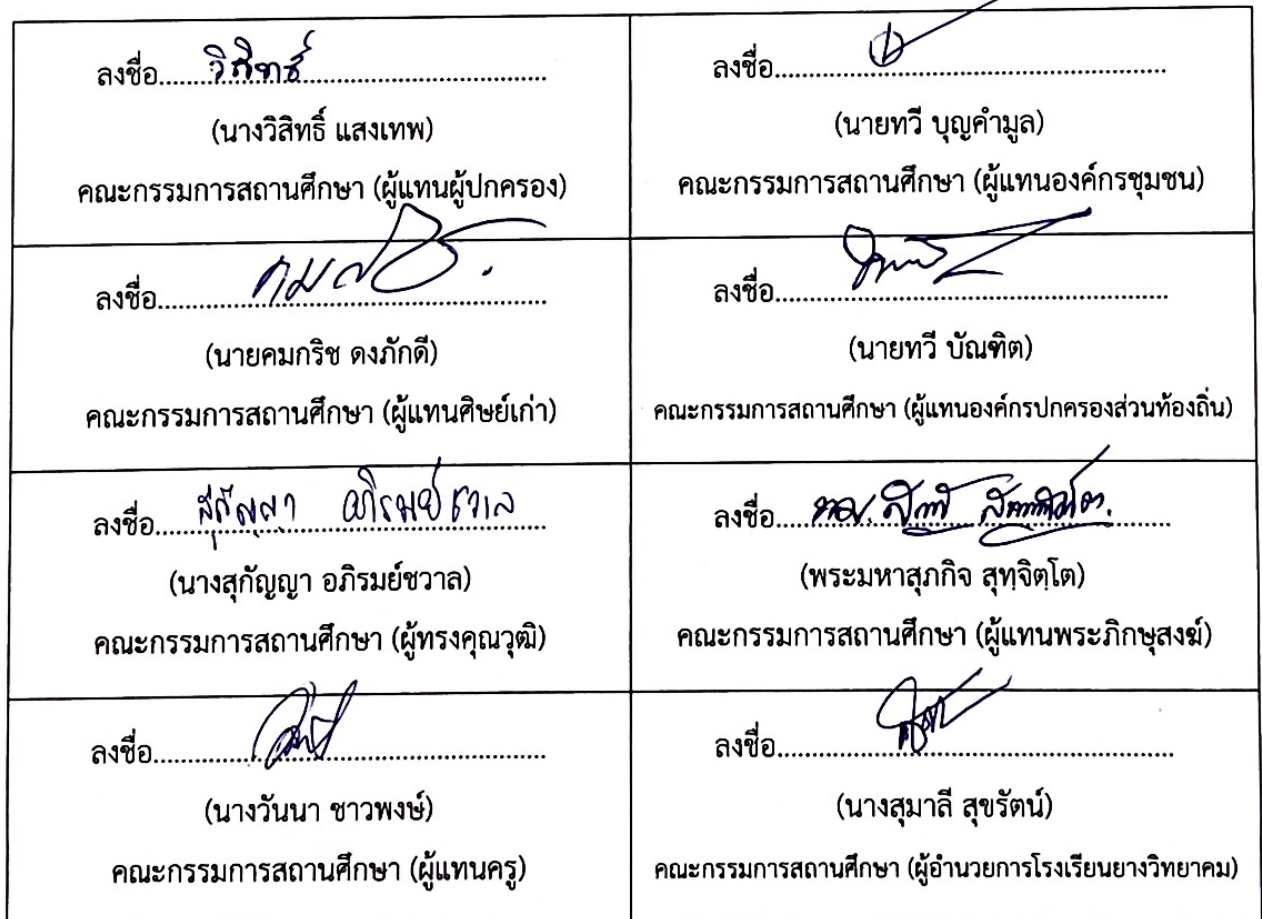 ลงชื่อ....วิสิทธิ์........................
(นางวิสิทธิ์ แสงเทพ)
คณะกรรมการสถานศึกษา (ผู้แทนผู้ปกครอง)
ลงชื่อ............................................
(นายทวี บุญคำมูล)
คณะกรรมการสถานศึกษา (ผู้แทนองค์กรชุมชน)
ลงชื่อ............................................
(นายคมกริช ดงภักดี)
คณะกรรมการสถานศึกษา (ผู้แทนศิษย์เก่า)
ลงชื่อ............................................
(นายทวี บัณฑิต)
คณะกรรมการสถานศึกษา (ผู้แทนองค์กรปกครองส่วนท้องถิ่น)
ลงชื่อ....สุกัญญา อภิรมย์ชวาล....
(นางสุกัญญา อภิรมย์ชวาล)
คณะกรรมการสถานศึกษา (ผู้ทรงคุณวุฒิ)
ลงชื่อ............................................
(พระมหาสุภกิจ สุทฺจิตฺโต)
คณะกรรมการสถานศึกษา (ผู้แทนพระภิกษุสงฆ์)
ลงชื่อ............................................
(นางวันนา ชาวพงษ์)
คณะกรรมการสถานศึกษา (ผู้แทนครู)
ลงชื่อ............................................
(นางสุมาลี สุขรัตน์)
คณะกรรมการสถานศึกษา (ผู้อำนวยการโรงเรียนยางวิทยาคม)